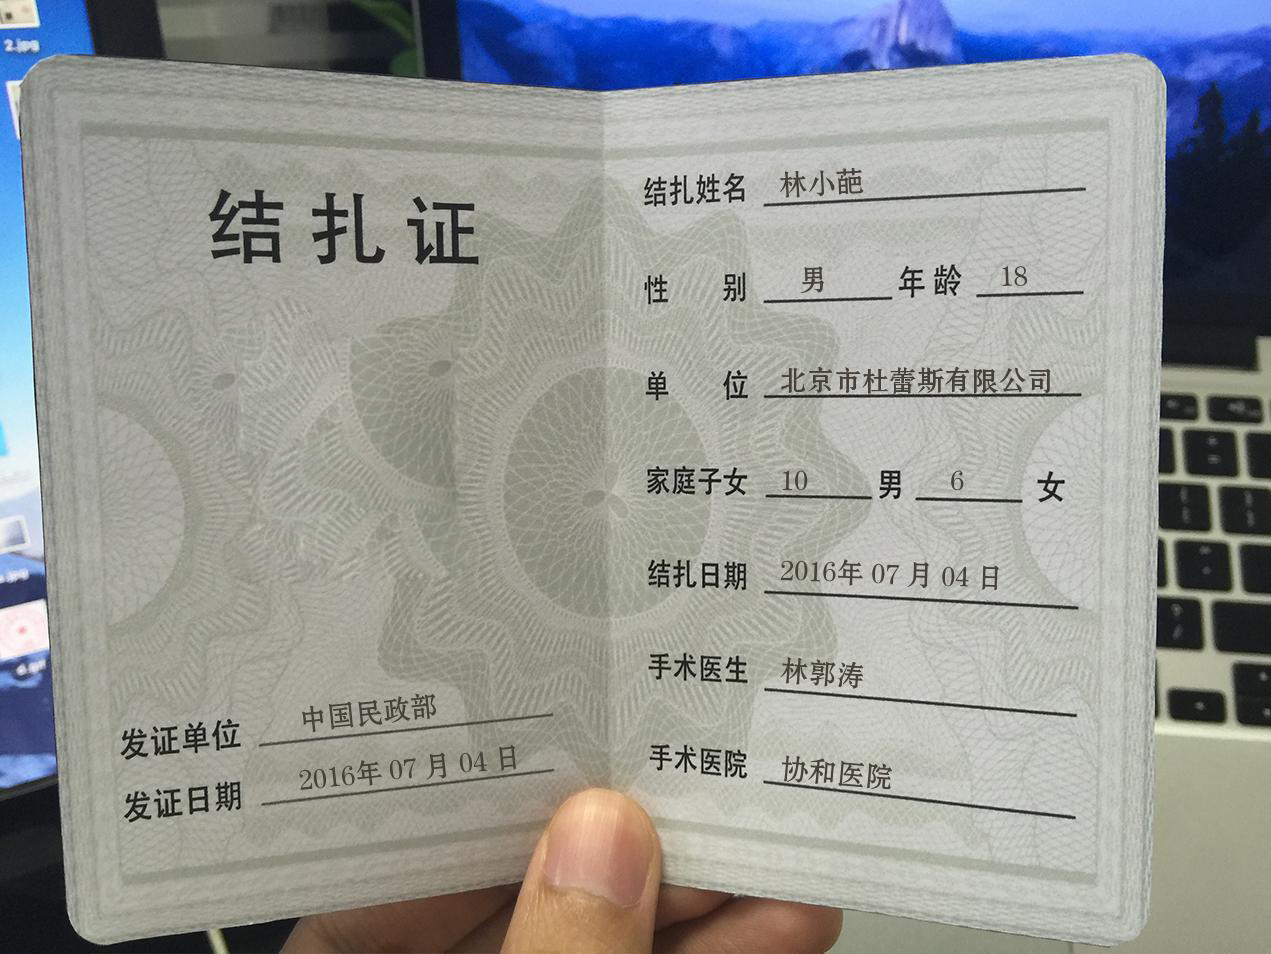 2.jpg
结扎证
发证单位 中国民政部
发证日期 2016年 07 月 04 日
结扎姓名 林小葩
性别 男 年龄 18
单位 北京市杜蕾斯有限公司
家庭子女 10 男 6 女
结扎日期 2016年 07 月 04 日
手术医生 林郭涛
手术医院 协和医院